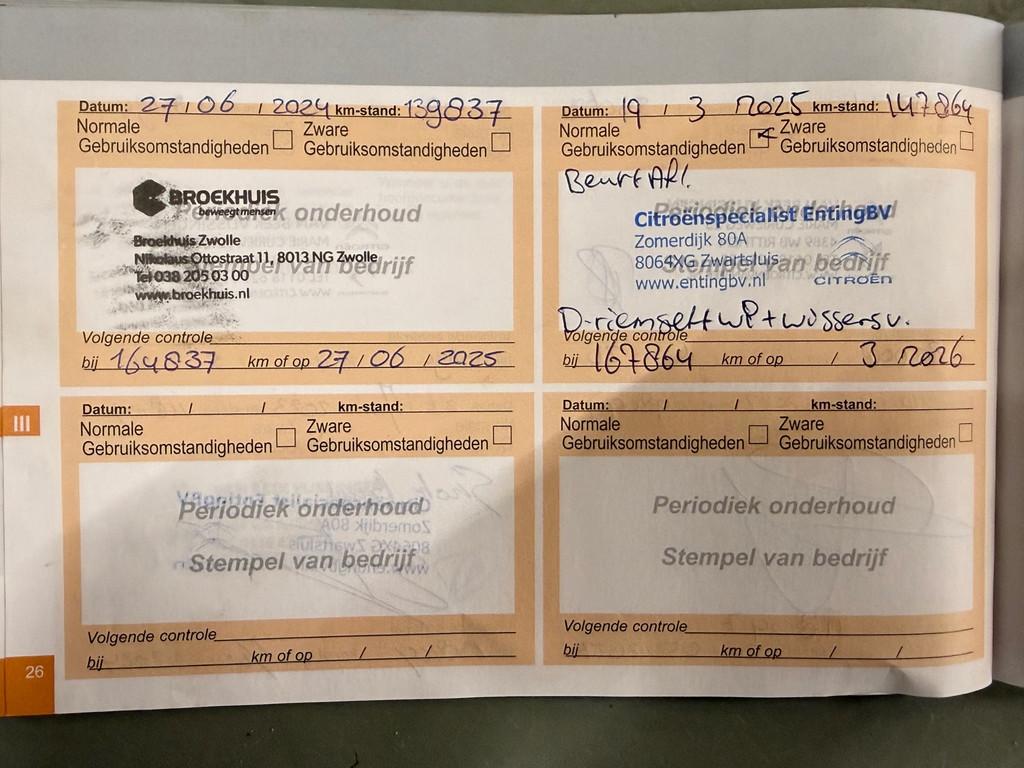 Datum: 27 / 06 / 2024 km-stand: 139837
Normale Gebruiksomstandigheden
Zware Gebruiksomstandigheden
BROEKHUIS
beweegt mensen
Periodiek onderhoud
Broekhuis Zwolle
Nikolaus Ottostraat 11, 8013 NG Zwolle
Stempel van bedrijf
Tel 038 205 03 00
www.broekhuis.nl
Volgende controle
bij 164837 km of op 27 / 06 / 2025
Datum: 19 / 3 2025 km-stand: 147864
Normale Gebruiksomstandigheden
Zware Gebruiksomstandigheden
Beurt
Citroënspecialist EntingBV
Periodiek onderhoud
Zomerdijk 80A
8064XG Zwartsluis
Stempel van bedrijf
www.entingbv.nl
CITROËN
D-riemset+WP+wissers v.
Volgende controle
bij 167864 km of op / 3 2026
III
Datum: / / km-stand:
Normale Gebruiksomstandigheden
Zware Gebruiksomstandigheden
Periodiek onderhoud
Stempel van bedrijf
Volgende controle
bij km of op / /
Datum: / / km-stand:
Normale Gebruiksomstandigheden
Zware Gebruiksomstandigheden
Periodiek onderhoud
Stempel van bedrijf
Volgende controle
bij km of op / /
26